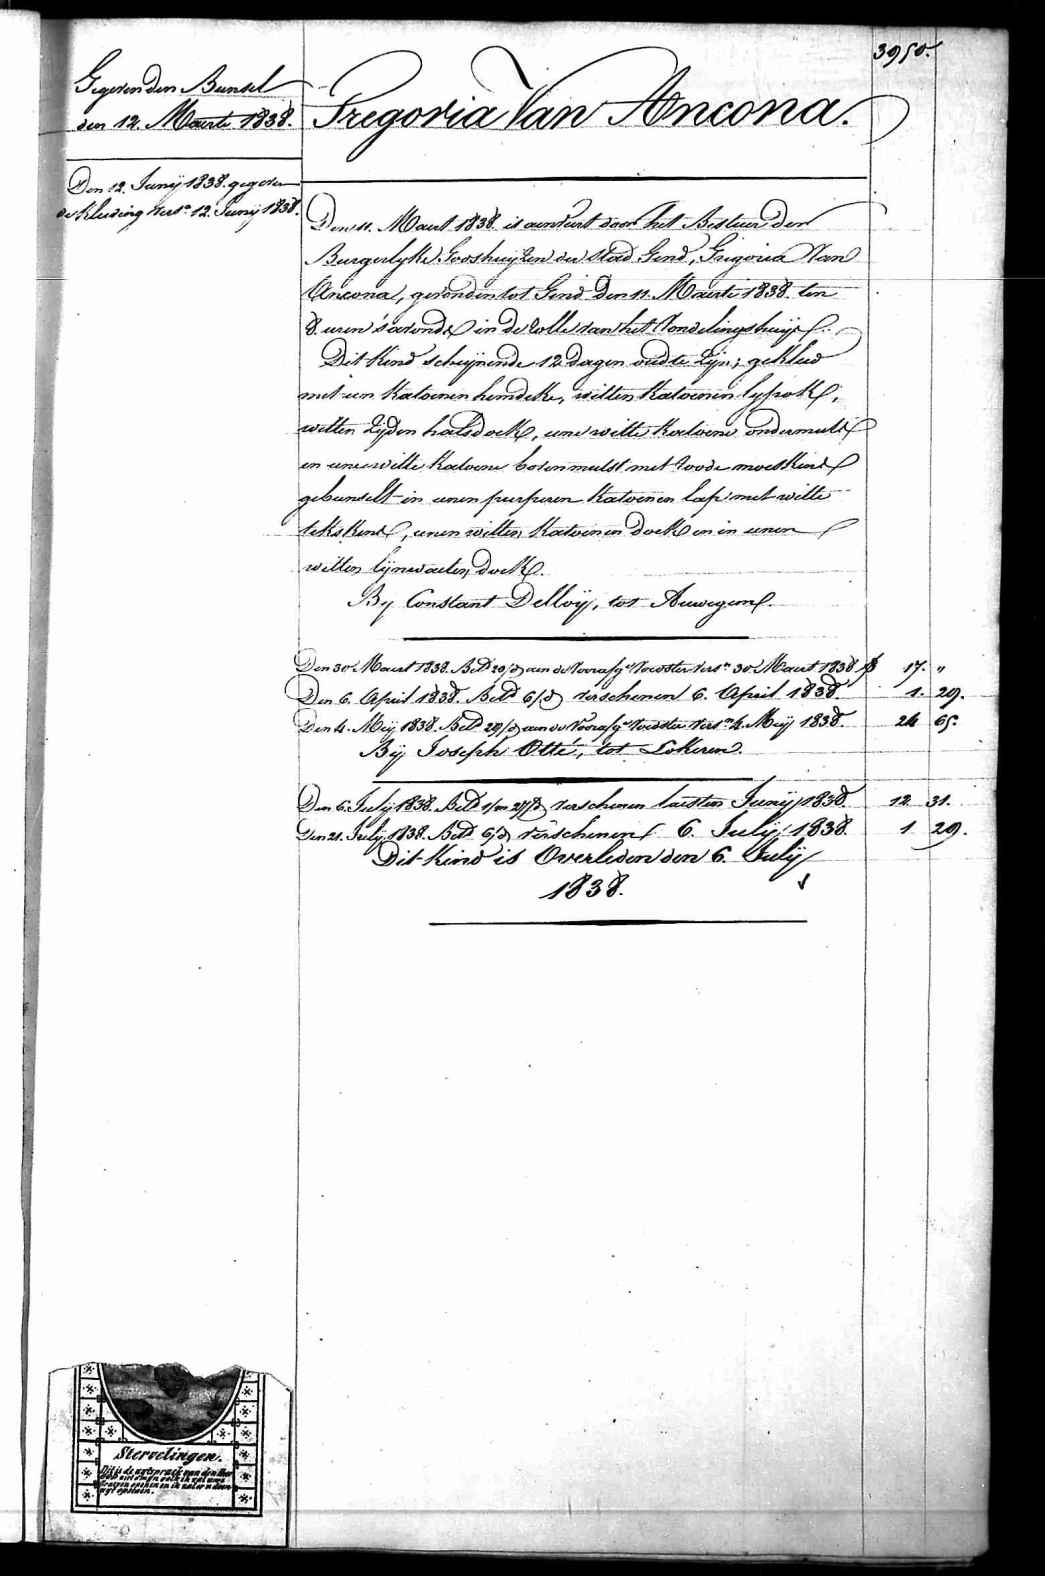 3950.
Gegeven den Bunsel
den 12. Maerte 1838.
Gregoria Van Ancona.
Den 12. Junij 1838. gegeven
de kleeding versn 12. Junij 1838.
Den 11. Maert 1838. is aenveirt door het Bestuer der
Burgerlyke Godshuijzen der stad Gend, Gregoria Van
Ancona, gevonden tot Gend den 11. Maerte 1838. ten
8. uren s'avonds in de Rolle van het Vondelingshuijs.
Dit Kind schijnende 12 dagen oud te zijn; gekleed
met een katoenen hemdeke, witten katoenen lyfrok,
witten zijden halsdoek, eene witte katoene ondermuts
en eene witte katoene bovenmuts met roode
gebunselt in eenen purperen katoenen lap met witte
, eenen witten katoenen doek en in eenen
witten lijnwaeten doek.
By Constant Delloij, tot Auwegem.
Den 30 Maert 1838. Betd 29/d aen de Voorafge Voedster versn 30 Maert 1838 17. "
Den 6. April 1838. Betd 6/d verschenen 6. April 1838. 1. 29.
Den 4. Meij 1838. Betd 29/d aen de Voorafge Voedster versn 4. Meij 1838. 24 65.
Bij Joseph Otté, tot Lokeren.
Den 6. July 1838. Betd 1/m 27/d verschenen laesten Junij 1838. 12. 31.
Den 21. July 1838. Betd 6/d verschenen 6. Julij 1838. 1 29.
Dit Kind is Overleden den 6. Julij
1838.
Stervelingen.
Dit is de uytspraek van den Heer